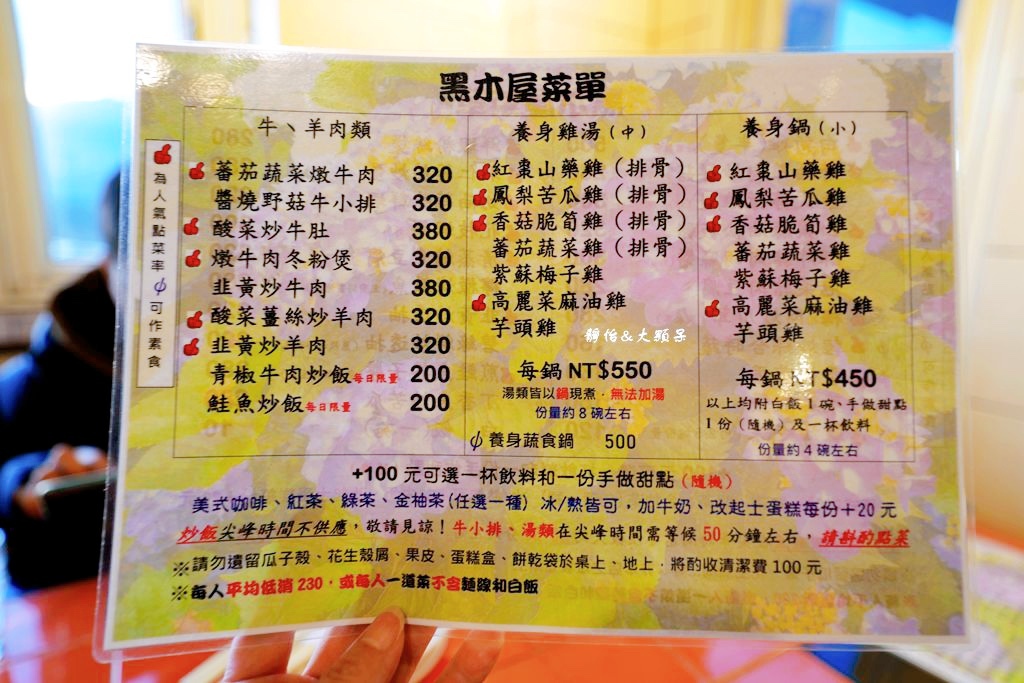 黑木屋菜單
為人氣點菜率 ∮可作素食
牛、羊肉類
蕃茄蔬菜燉牛肉 320
醬燒野菇牛小排 320
酸菜炒牛肚 380
燉牛肉冬粉煲 320
韭黃炒牛肉 380
酸菜薑絲炒羊肉 320
韭黃炒羊肉 320
青椒牛肉炒飯每日限量 200
鮭魚炒飯每日限量 200
養身雞湯(中)
紅棗山藥雞(排骨)
鳳梨苦瓜雞(排骨)
香菇脆筍雞(排骨)
蕃茄蔬菜雞(排骨)
紫蘇梅子雞
高麗菜麻油雞
芋頭雞
每鍋 NT$550
湯類皆以鍋現煮,無法加湯
份量約 8 碗左右
∮養身蔬食鍋 500
養身鍋(小)
紅棗山藥雞
鳳梨苦瓜雞
香菇脆筍雞
蕃茄蔬菜雞
紫蘇梅子雞
高麗菜麻油雞
芋頭雞
每鍋 NT$450
以上均附白飯 1 碗、手做甜點
1 份(隨機)及一杯飲料
份量約 4 碗左右
靜怡&大顆呆
+100 元可選一杯飲料和一份手做甜點(隨機)
美式咖啡、紅茶、綠茶、金柚茶(任選一種) 冰/熱皆可,加牛奶、改起士蛋糕每份+20 元
炒飯尖峰時間不供應,敬請見諒!牛小排、湯類在尖峰時間需等候 50 分鐘左右,請斟酌點菜
※請勿遺留瓜子殼、花生殼屑、果皮、蛋糕盒、餅乾袋於桌上、地上,將酌收清潔費 100 元
※每人平均低消 230,或每人一道菜不含麵線和白飯